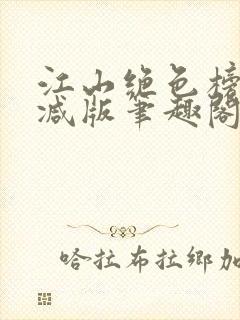 江山绝色榜
减版笔趣阁
哈拉布拉鄉加